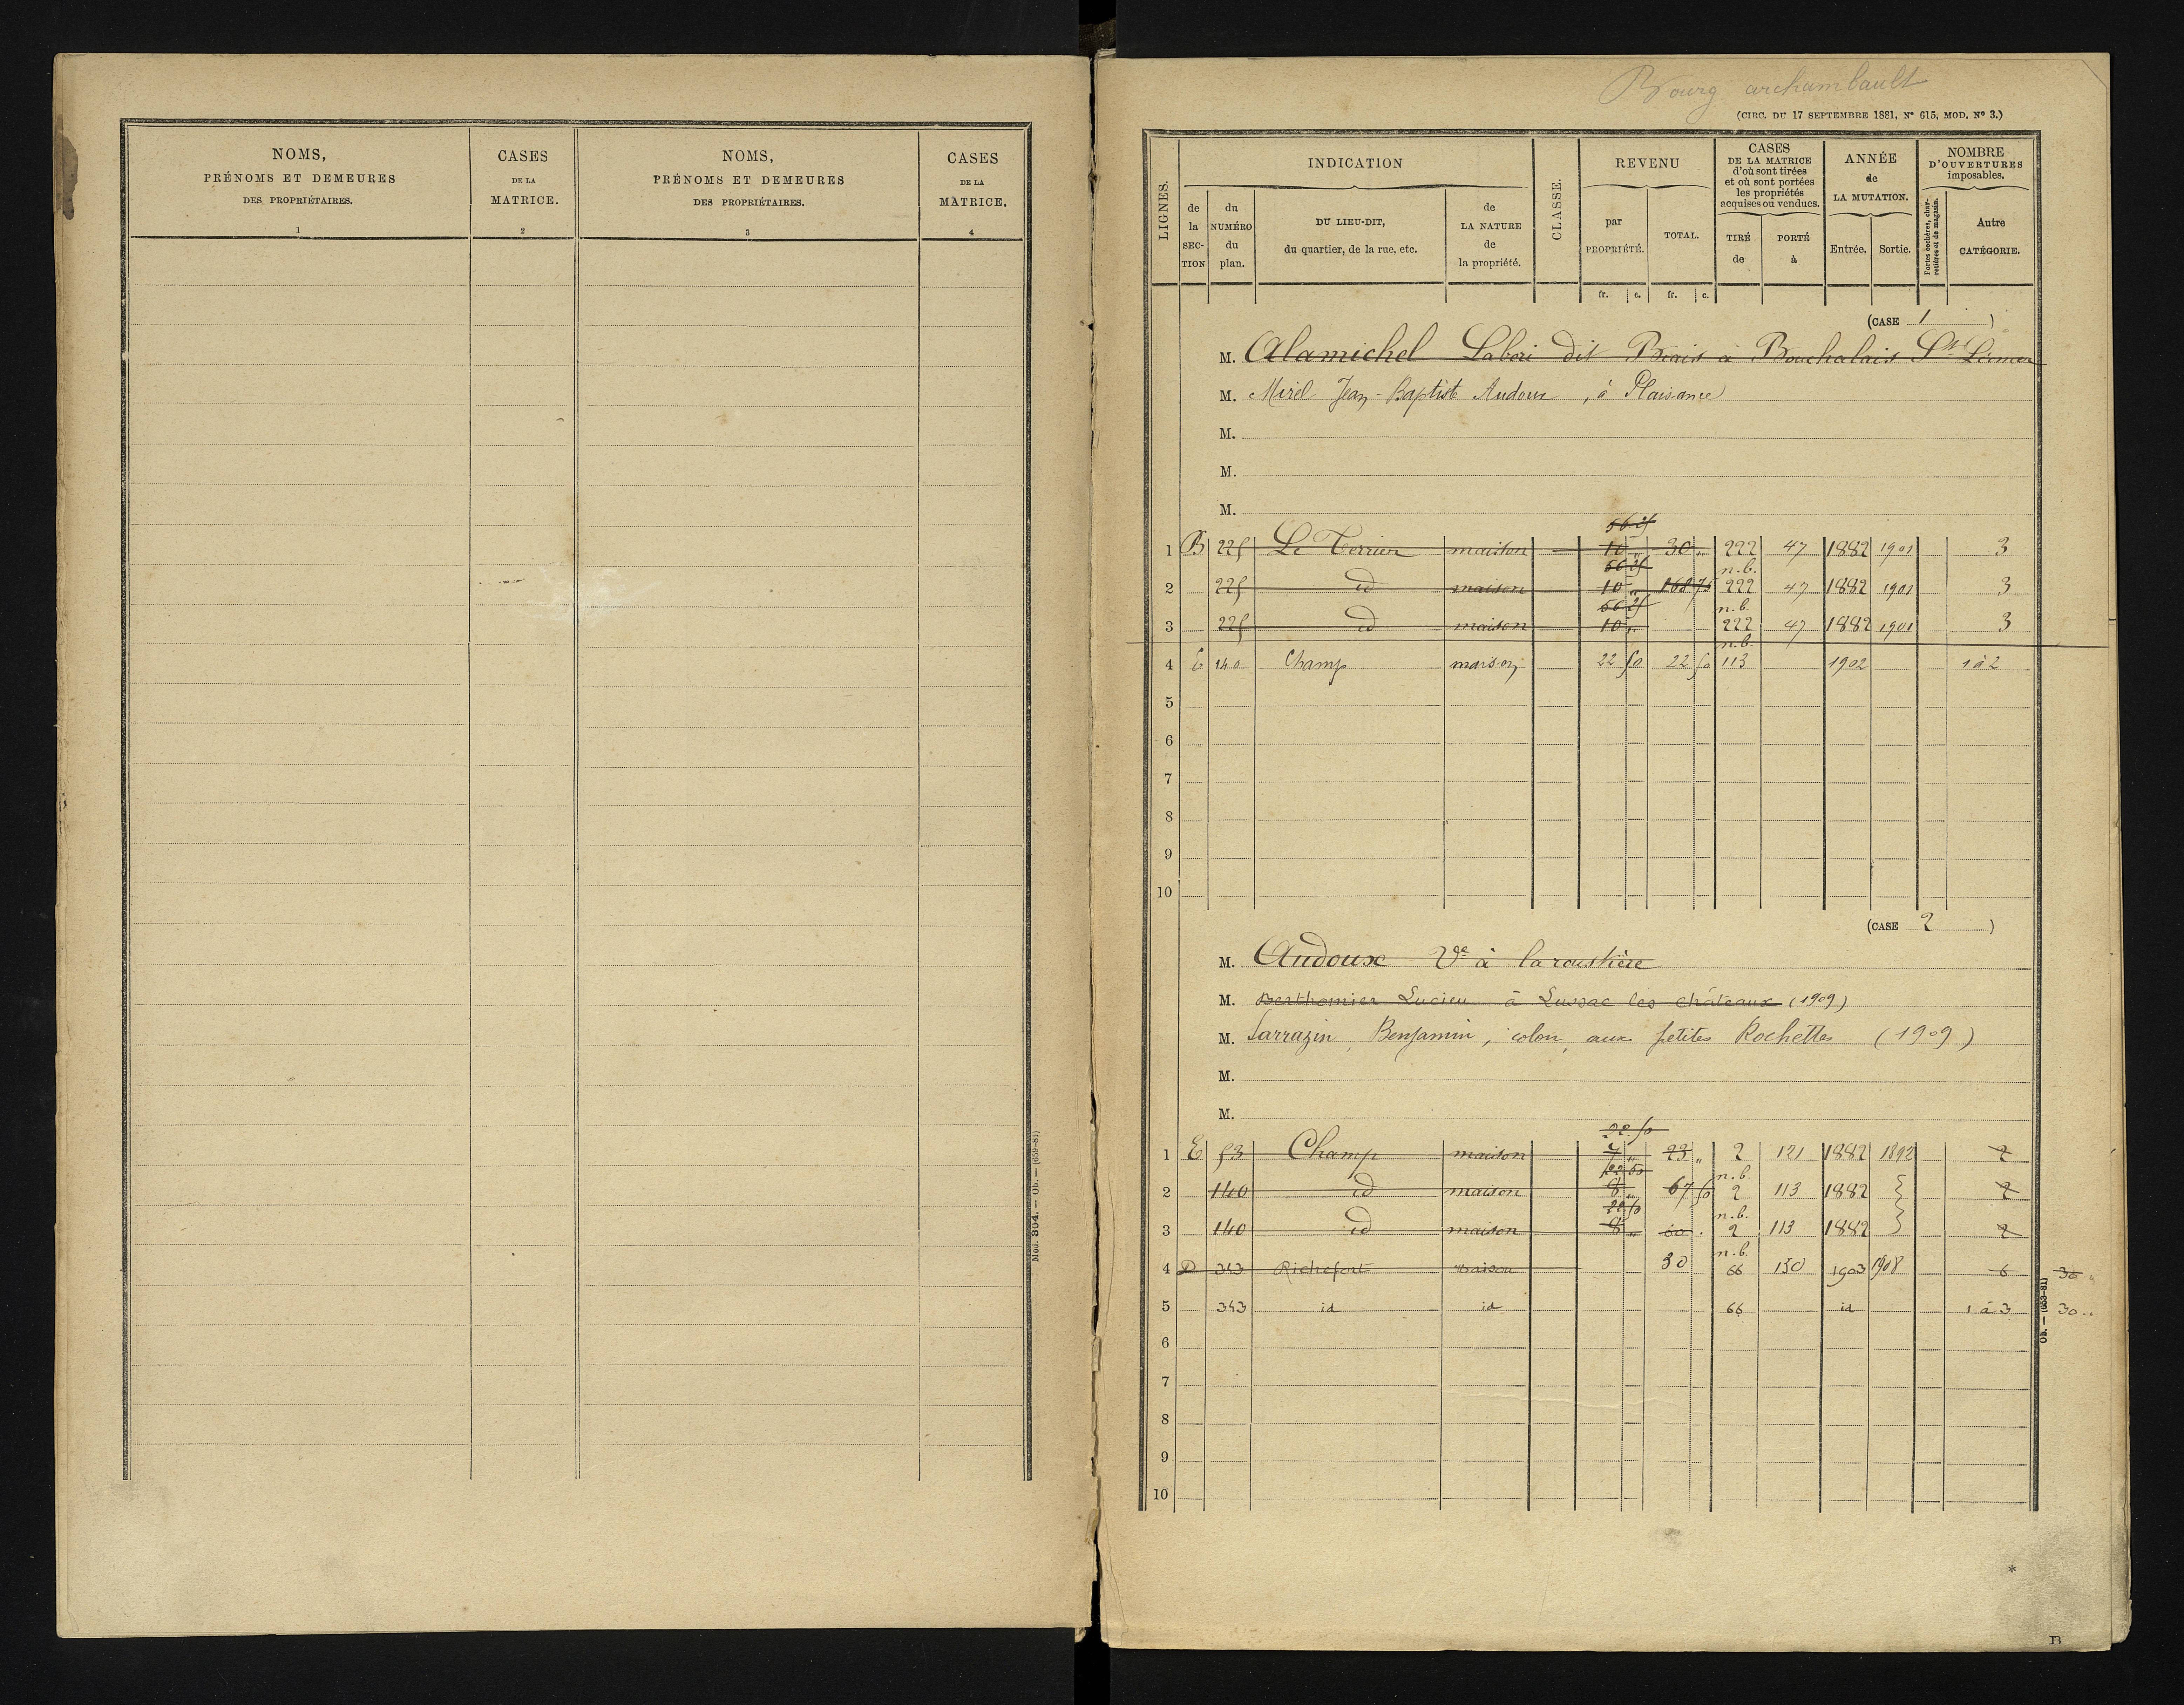 NOMS,
PRÉNOMS ET DEMEURES
DES PROPRIÉTAIRES.
1
CASES
DE LA
MATRICE.
2
NOMS,
PRÉNOMS ET DEMEURES
DES PROPRIÉTAIRES.
3
CASES
DE LA
MATRICE.
4
Mod. 304. — Ob. — (659-81)
Bourg archambault
(CIRC. DU 17 SEPTEMBRE 1881, N° 615, MOD. N° 3.)
LIGNES.
INDICATION
de la SECTION
du NUMÉRO du plan.
DU LIEU-DIT, du quartier, de la rue, etc.
de LA NATURE de la propriété.
CLASSE.
REVENU
par PROPRIÉTÉ.
TOTAL.
fr. c. fr. c.
CASES DE LA MATRICE d'où sont tirées et où sont portées les propriétés acquises ou vendues.
TIRÉ de
PORTÉ à
ANNÉE de LA MUTATION.
Entrée. Sortie.
NOMBRE D'OUVERTURES imposables.
Portes cochères, charretières et de magasin.
Autre CATÉGORIE.
(CASE 1 )
M. Alamichel dit à
M. Mirel Jean-Baptist Audoux, à Plaisance
M.
M.
M.
56 25
1 B 225 Le Terrier maison 10 „ 30 „ 222 47 1882 1901 3
56 25 n.b.
2 225 id maison 10 „ 168 75 222 47 1882 1901 3
56 25 n.b.
3 225 id maison 10 „ 222 47 1882 1901 3
n.b.
4 E 140 Champ maison 22 50 22 50 113 1902 1 à 2
5
6
7
8
9
10
(CASE 2 )
M. Audoux Ve à laroustière
M. Berthomier Lucien à Lussac les châteaux (1909)
M. Sarrazin, Benjamin, colon, aux petites Rochettes (1909)
M.
M.
22 50
1 E 53 Champ maison 7 „ 23 „ 2 121 1882 1892 2
22 50 n.b.
2 140 id maison 8 „ 67 50 2 113 1882 2
22 50 n.b.
3 140 id maison 8 „ 2 113 1882 2
n.b.
4 D 343 Richefort maison 30 66 130 1903 1908 6 30 „
5 343 id id 66 id 1 à 3 30 „
6
7
8
9
10
Ob. — (653-81)
*
B